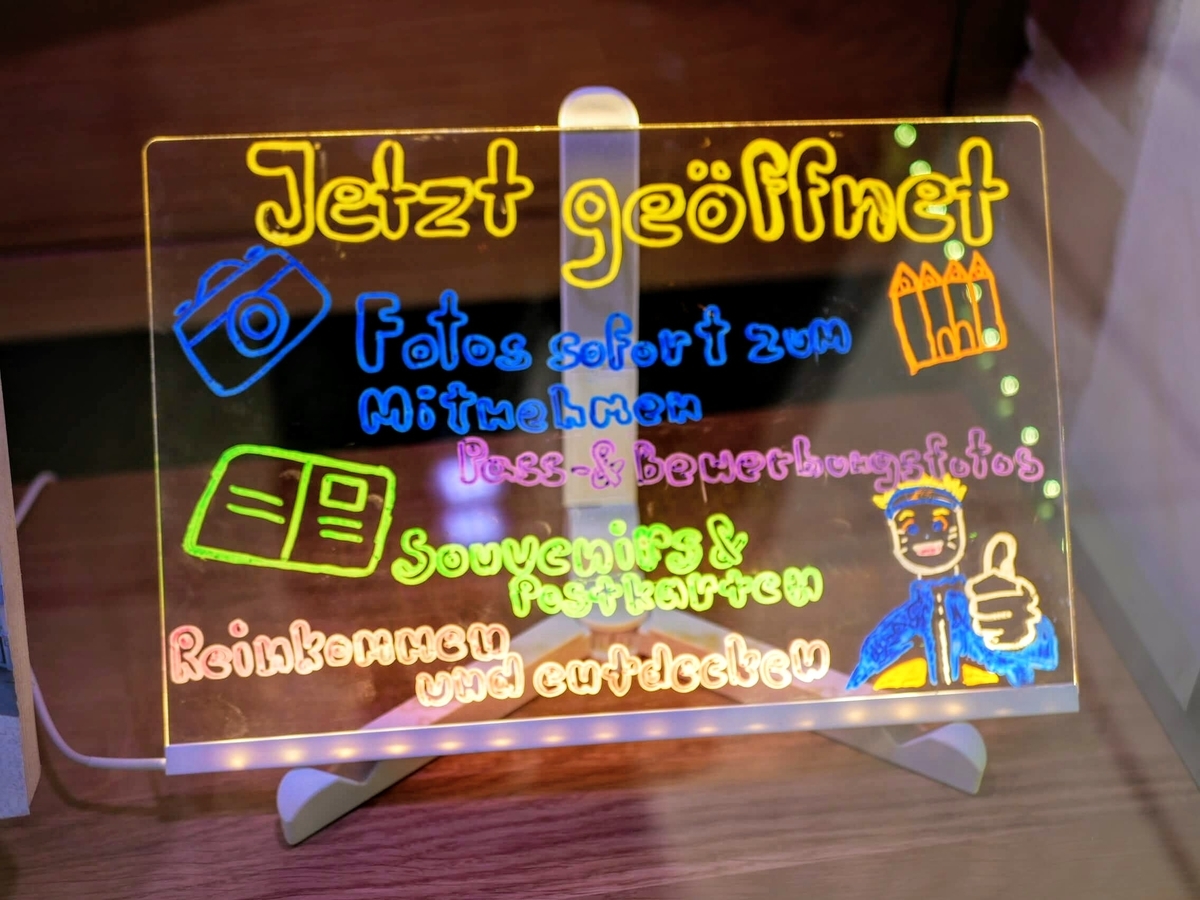 Jetzt geöffnet
Fotos sofort zum
Mitnehmen
Pass-& Bewerbungsfotos
Souvenirs &
Postkarten
Reinkommen
und entdecken